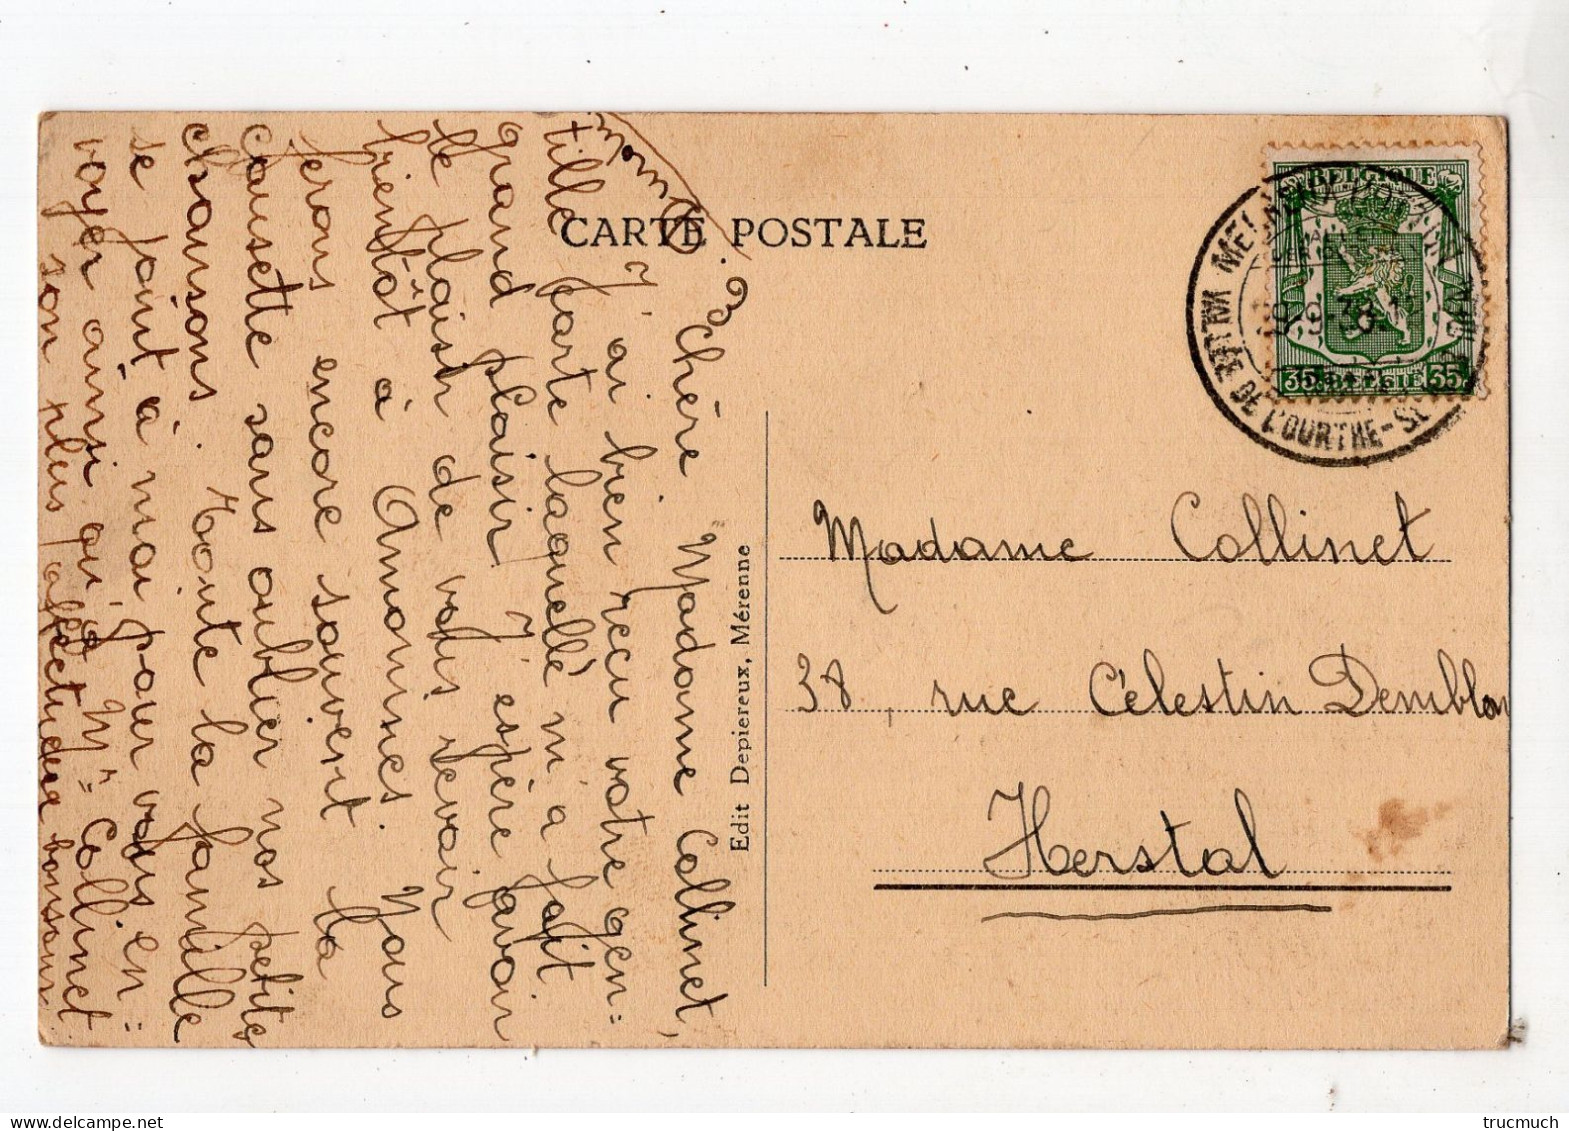 CARTE POSTALE
Chère Madame Collinet,
J'ai bien reçu votre gen=
tille carte laquelle m'a fait
grand plaisir. J'espère avoir
le plaisir de vous revoir
bientôt à Amonines. Nous
ferons encore souvent la
causette sans oublier nos petites
chansons. Toute la famille
se joint à moi pour vous en=
voyer ainsi qu'à Mr Collinet
son plus affectueux bonsoir
Edit Depiereux, Mérenne
BELGIQUE
35 BELGIE 35
DE L'OURTHE-ST
Madame Collinet
38, rue Célestin Demblon
Herstal
trucmuch